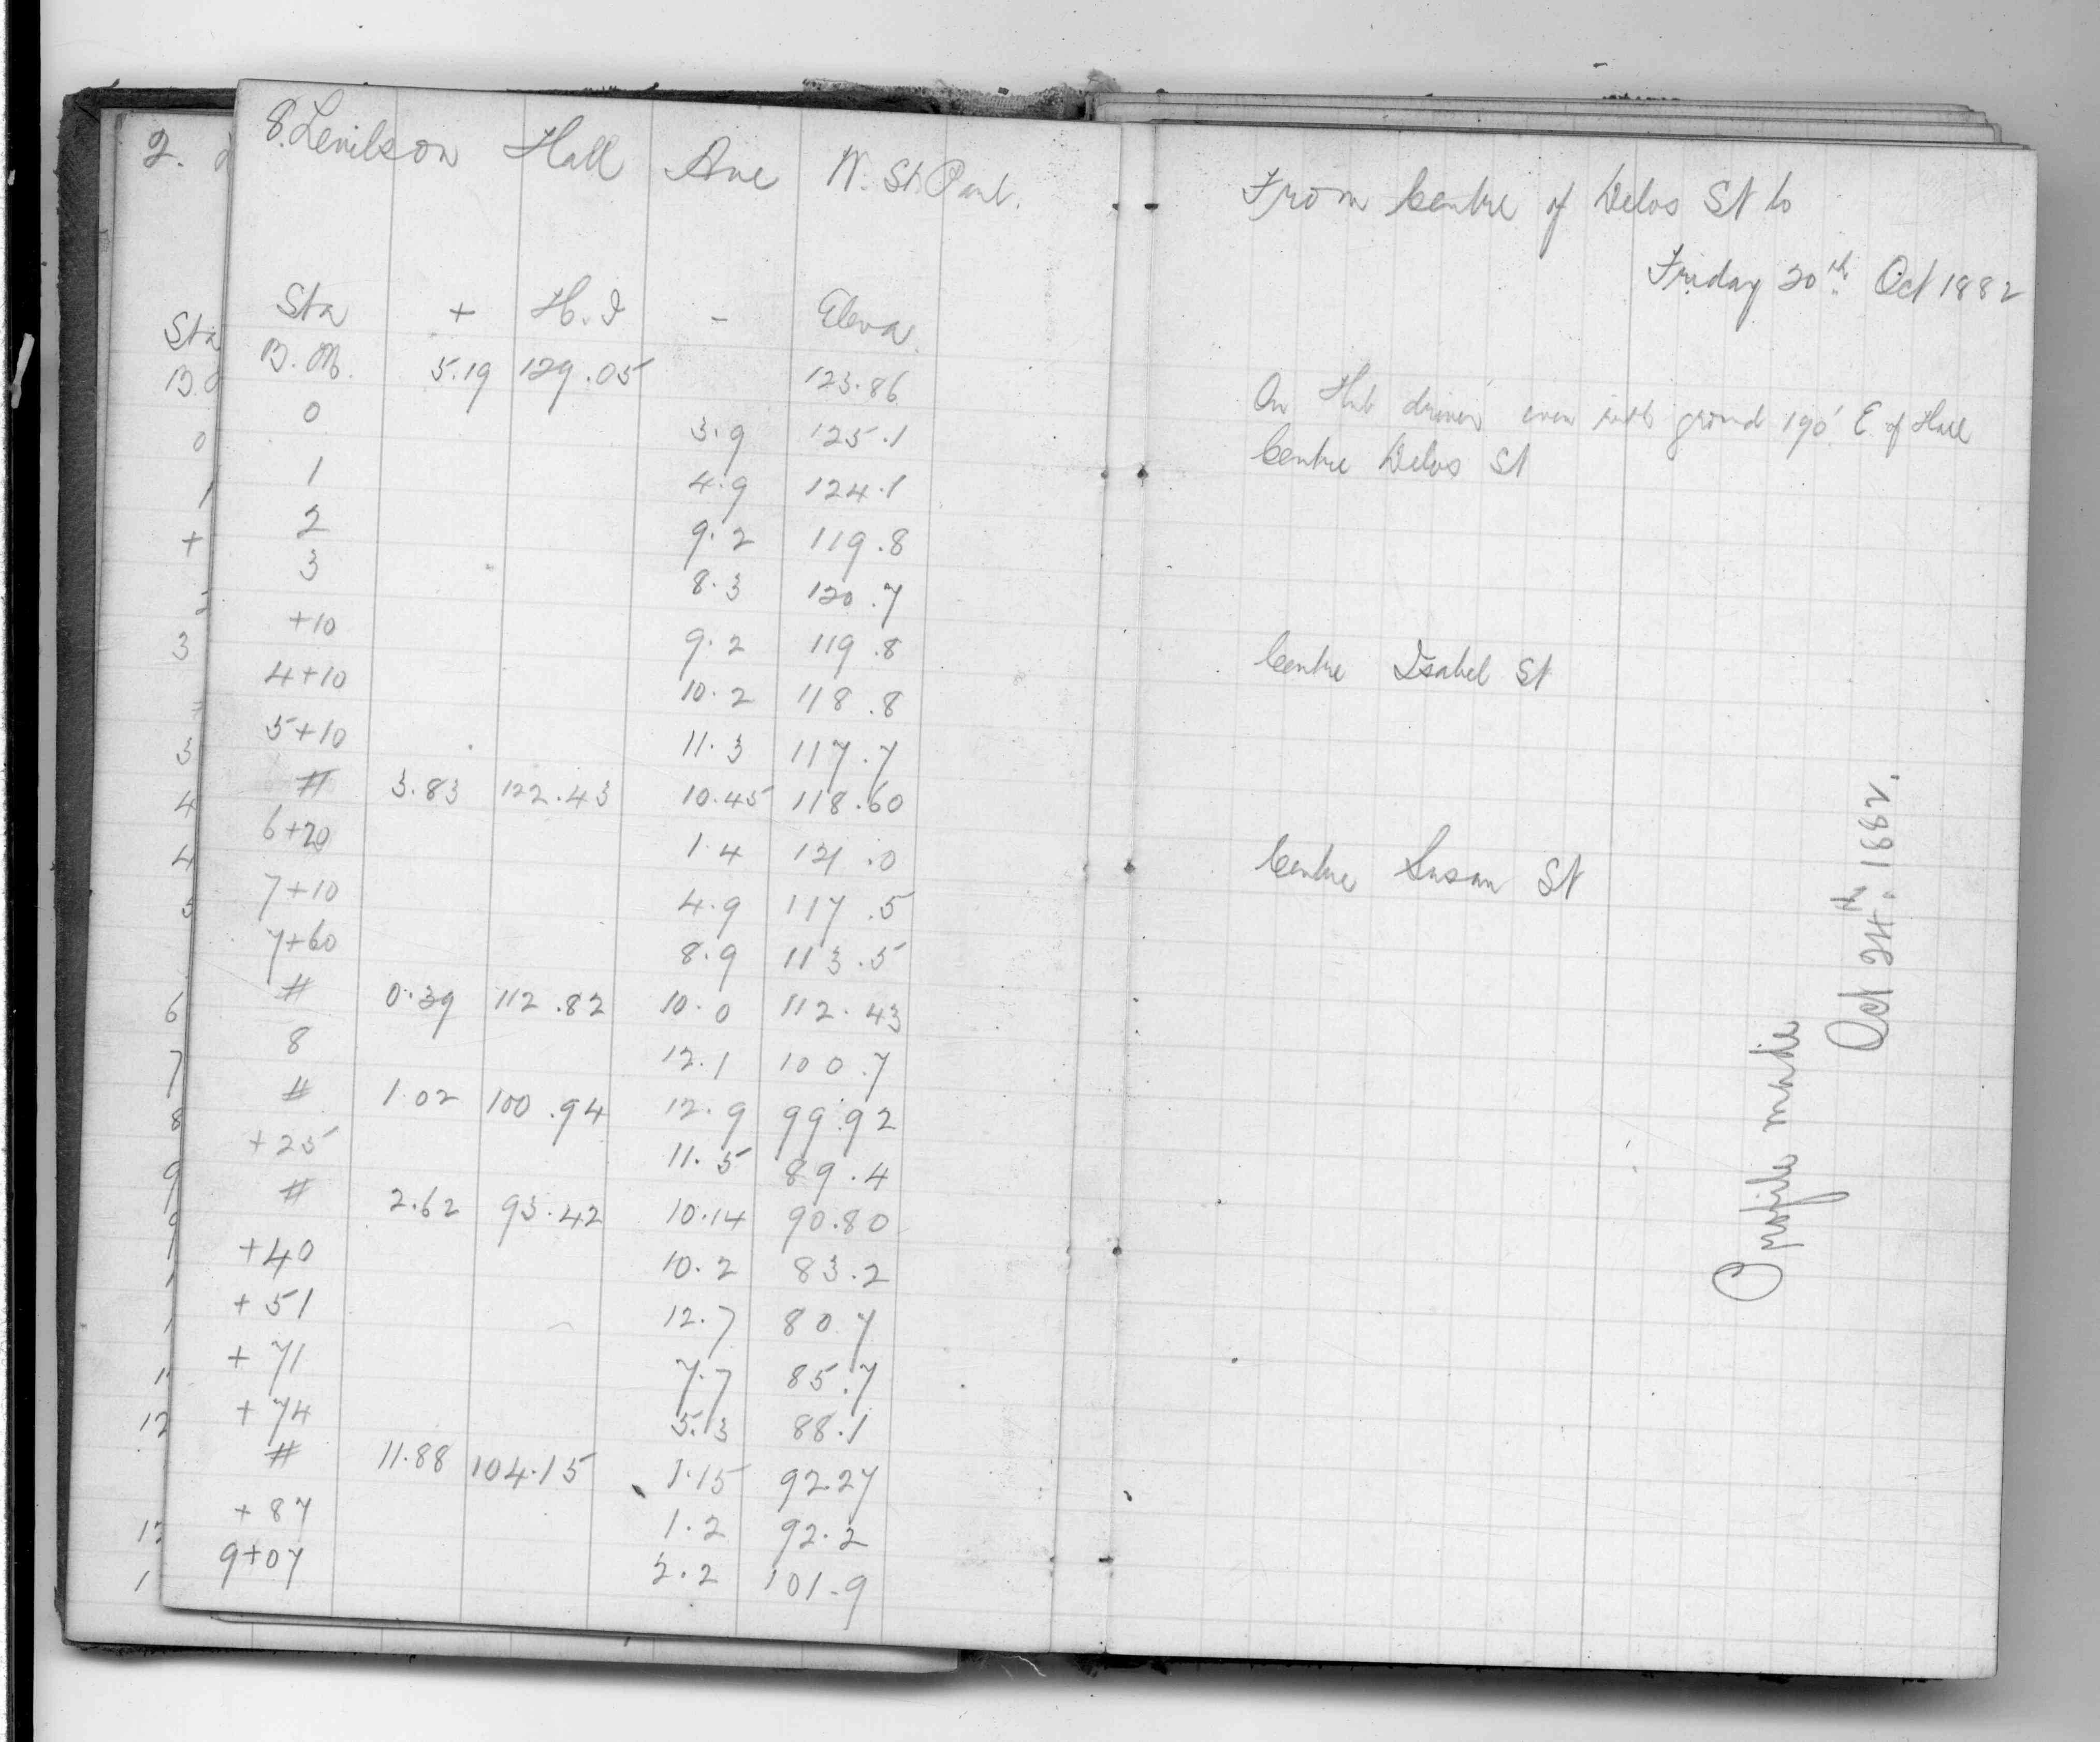 2.
8. Lenilson Hall Ave W. St Paul.
Sta + H.I - Eleva
B.M. 5.19 129.05 123.86
0 3.9 125.1
1 4.9 124.1
2 9.2 119.8
3 8.3 120.7
+10 9.2 119.8
4+10 10.2 118.8
5+10 11.3 117.7
# 3.83 122.43 10.45 118.60
6+20 1.4 121.0
7+10 4.9 117.5
7+60 8.9 113.5
# 0.39 112.82 10.0 112.43
8 12.1 100.7
# 1.02 100.94 12.9 99.92
+25 11.5 89.4
# 2.62 93.42 10.14 90.80
+40 10.2 83.2
+51 12.7 80.7
+71 7.7 85.7
+74 5.3 88.1
# 11.88 104.15 1.15 92.27
+87 1.2 92.2
9+07 2.2 101.9
Sta
B.
0
1
+
3
3
4
4
5
6
7
8
9
9
12
12
1
From Centre of Delos St to
Friday 20th Oct 1882
On Hub driven even with ground 190' E of Hall
Centre Delos St
Centre Isabel St
Centre Susan St
Profile made
Oct 24th 1882.